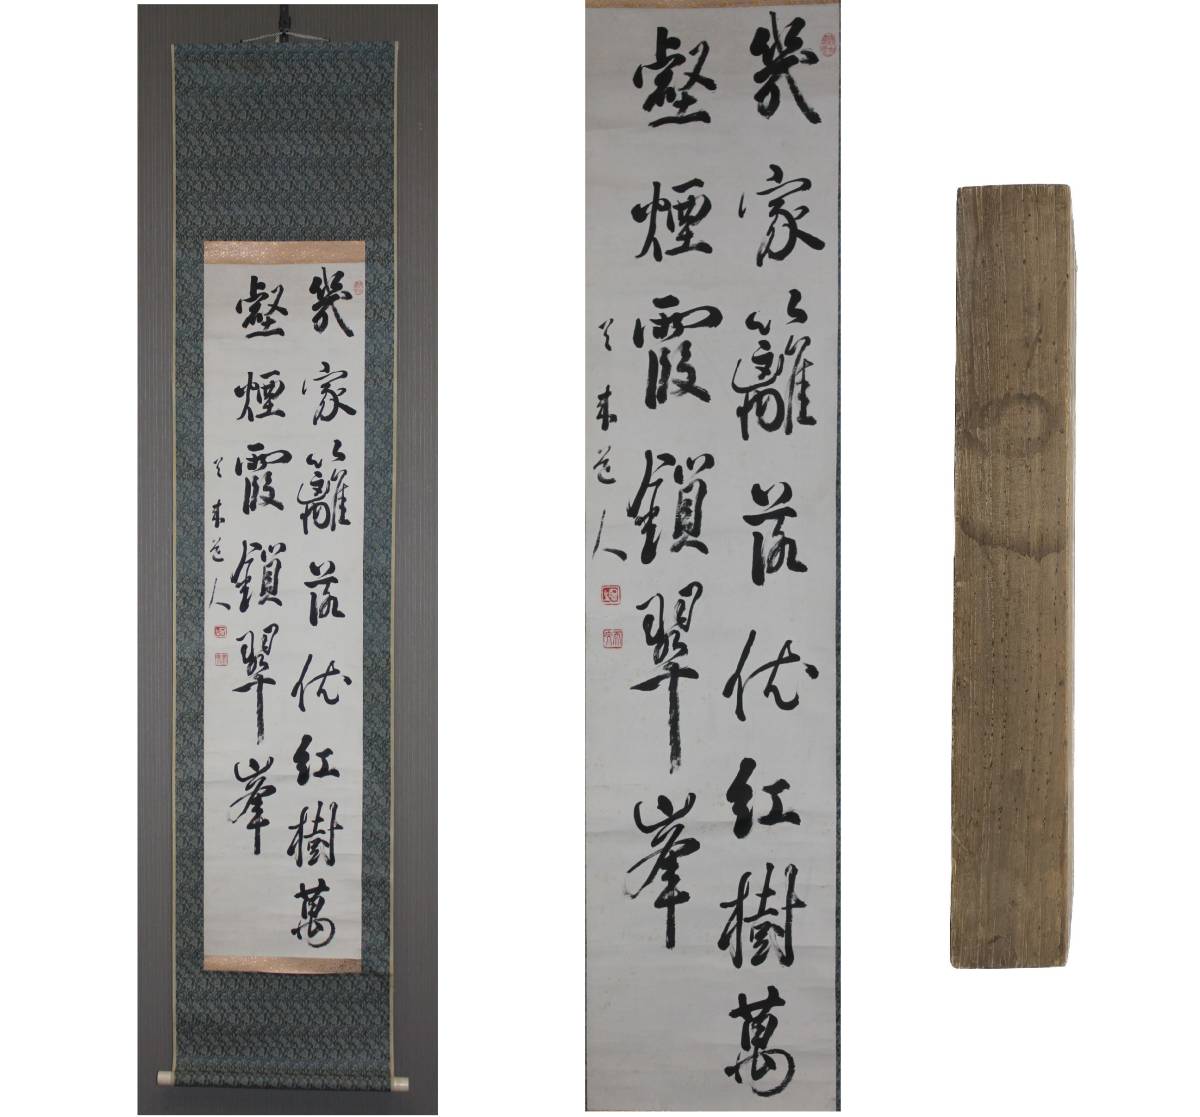 幾家籬落依紅樹萬
壑煙霞鎖翠峯
天来道人
幾家籬落依紅樹萬
壑煙霞鎖翠峯
天来道人